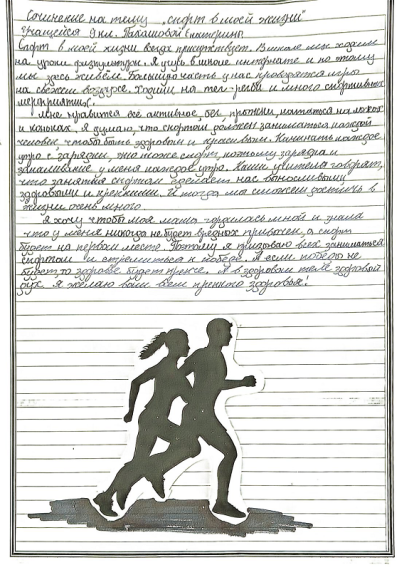 Сочинение на тему „спорт в моей жизни"
Учащейся 9 кл. Талашовой Екатерины.
Спорт в моей жизни всегда присутствует. В школе мы ходим
на уроки физкультуры. Я учусь в школе интернате и по этому
мы здесь живём. Большую часть у нас проводятся игры
на свежем воздухе. Ходим на и много спортивных
мероприятиях.
Мне нравится всё активное, бег, прыжки, кататься на лыжах
и коньках. Я думаю, что спортом должен заниматься каждый
человек чтобы быть здоровым и красивым. Начинать каждое
утро с зарядки, это тоже спорт, поэтому зарядкой
занимаемся у меня каждое утро. Наши учителя говорят,
что занятия спортом сделают нас выносливыми,
здоровыми и крепкими. И тогда мы сможем достичь в
жизни очень много.
Я хочу чтобы моя мама гордилась мной и знала
что у меня никогда не будет вредных привычек, а спорт
будет на первом месте. Поэтому я призываю всех заниматься
спортом и стремиться к победе. А если победы не
будет, то здоровье будет крепче. А в здоровом теле здоровый
дух. Я желаю вам всем крепкого здоровья!